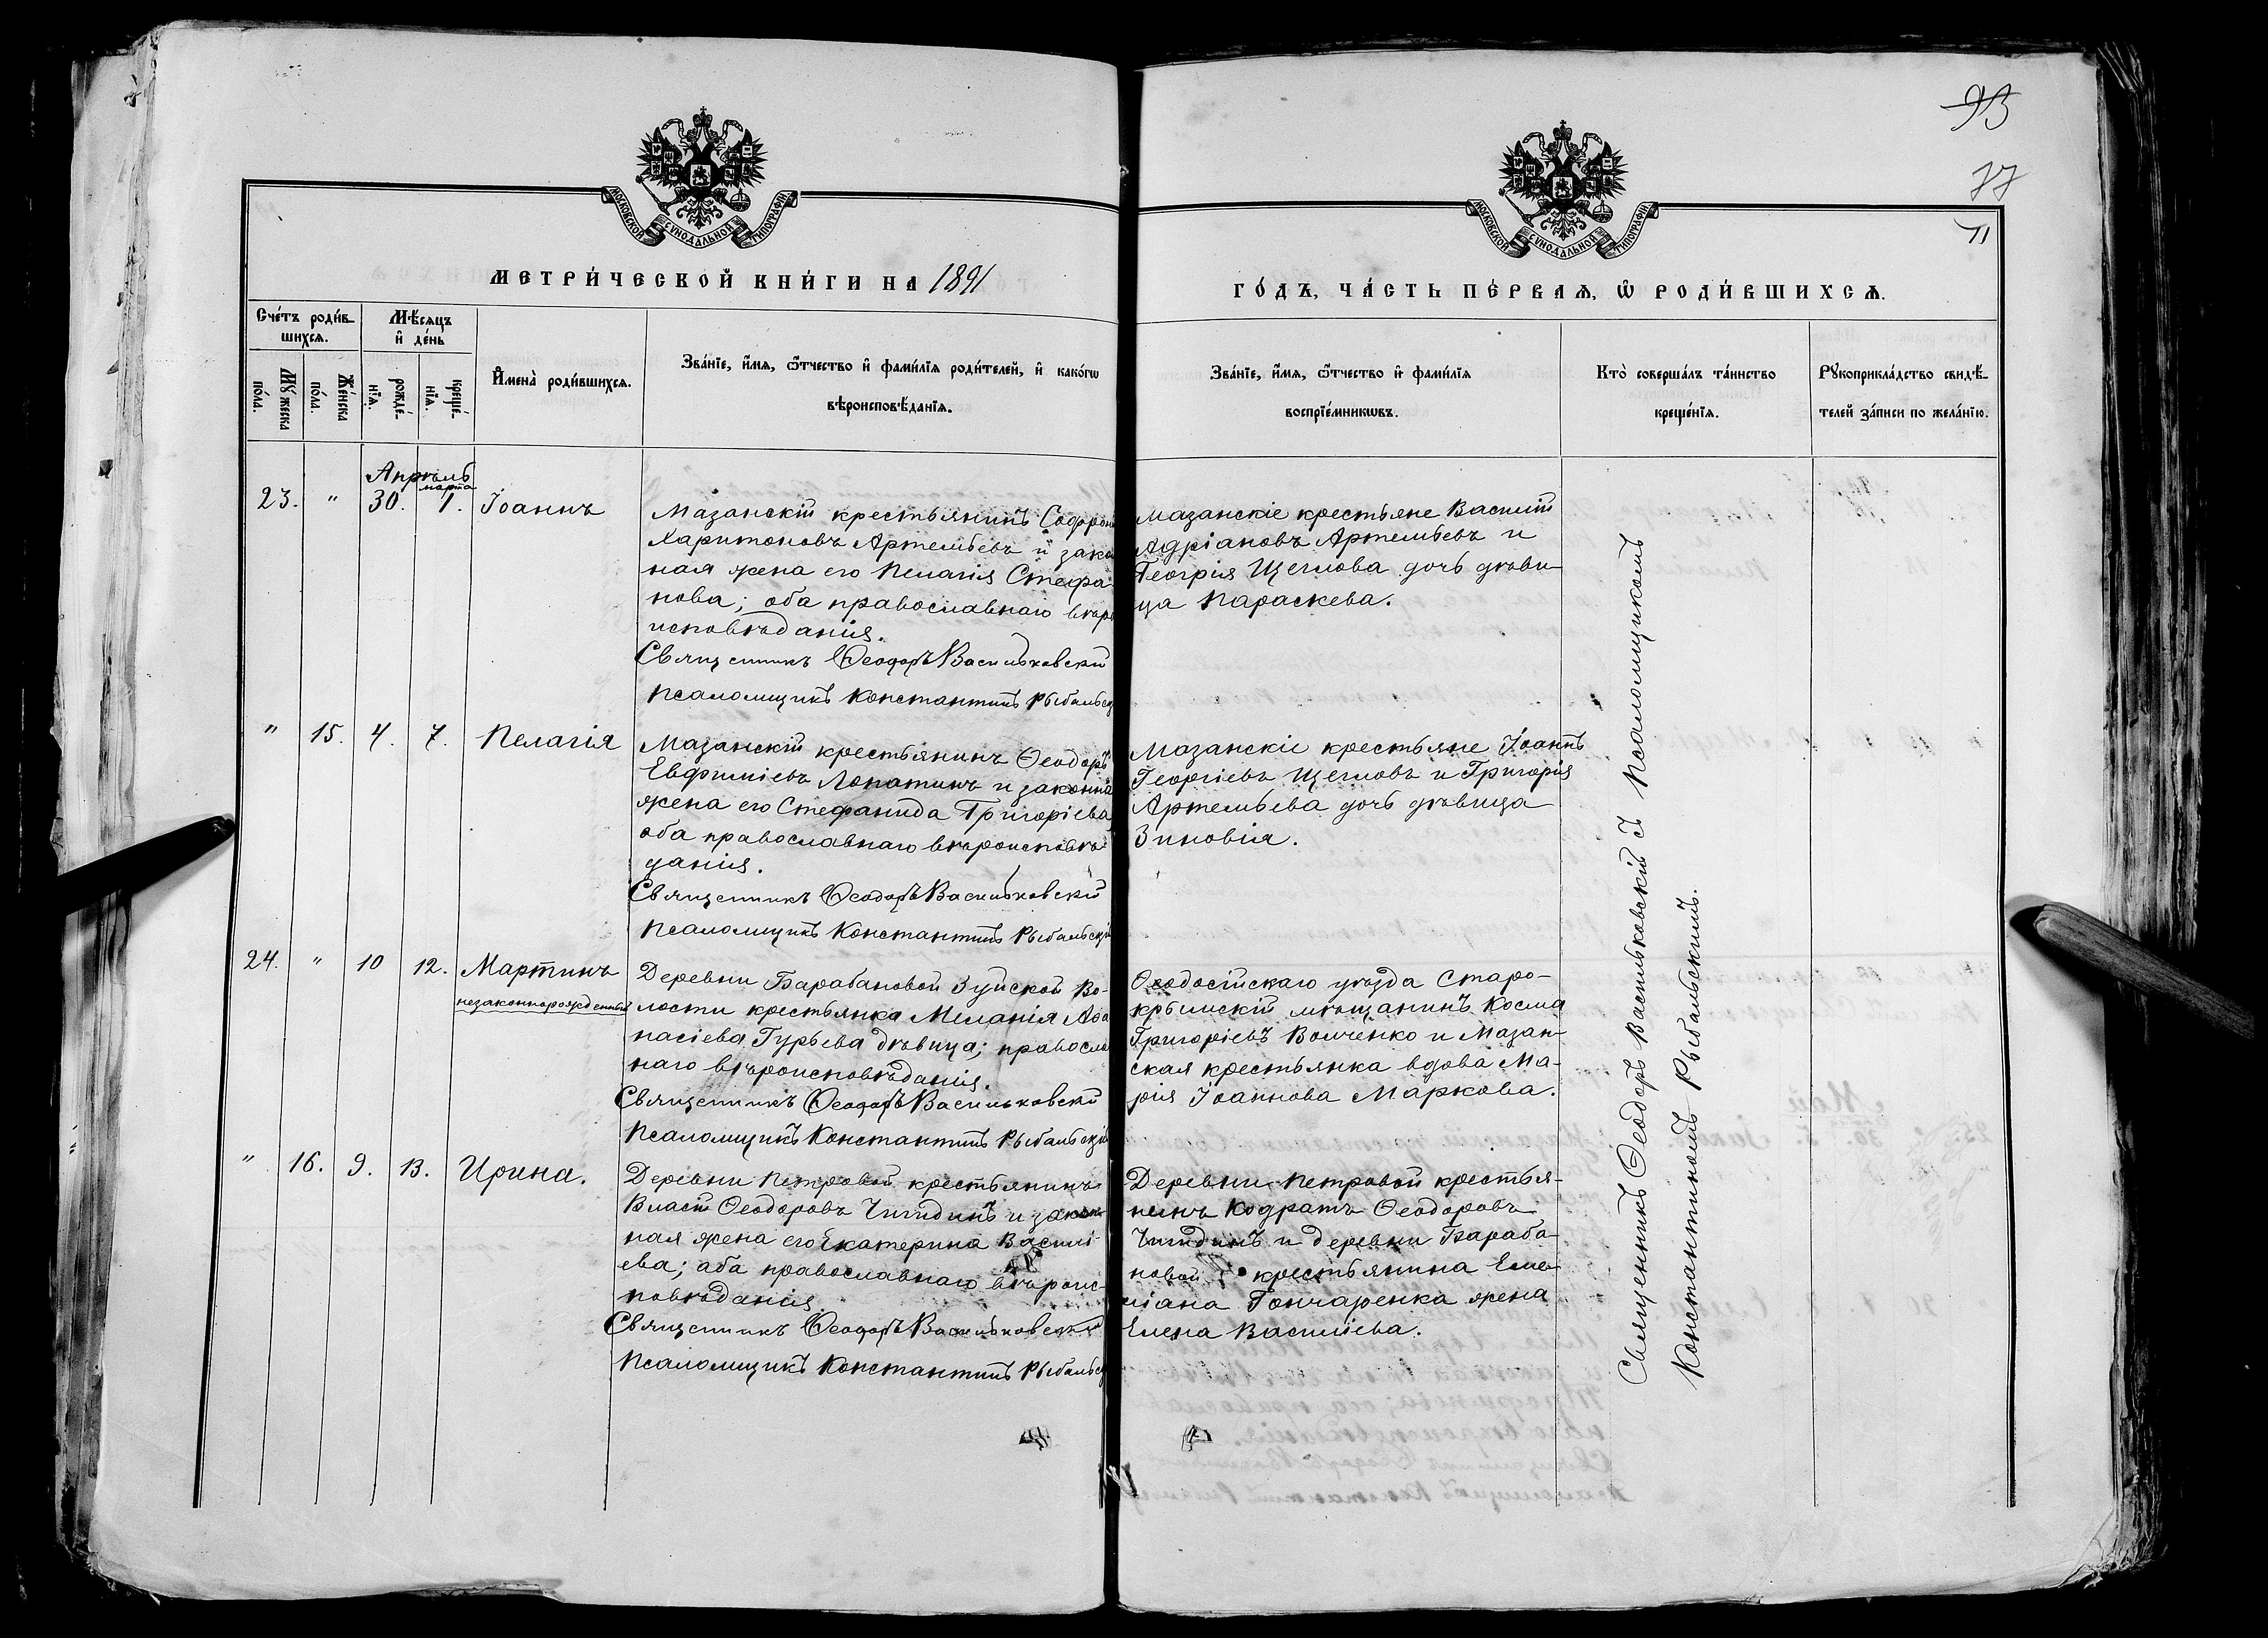 93
77
71
МОСКОВСКОЙ СУНОДАЛЬНОЙ ТИПОГРАФІИ.
МОСКОВСКОЙ СУНОДАЛЬНОЙ ТИПОГРАФІИ.
МЕТРИ́ЧЕСКОЙ КНИ́ГИ НА 1891
ГО́ДЪ, ЧА́СТЬ ПЕ́РВАѦ, Ѿ РОДИ́ВШИХСѦ.
Сче́тъ роди́в-
шихсѧ.
Мꙋ́жеска
по́ла.
Же́нска
по́ла.
Мѣ́сѧцъ
и҆ де́нь
рожде́-
нїѧ.
креще́-
нїѧ.
И҆мена̀ роди́вшихсѧ.
Зва́нїе, и҆́мѧ, ѻ҆́тчество и҆ фами́лїѧ роди́телей, и҆ како́гѡ
вѣроисповѣ́данїѧ.
Зва́нїе, и҆́мѧ, ѻ҆́тчество и҆ фами́лїѧ
воспрїе́мникѡвъ.
Кто̀ соверша́лъ та́инство
креще́нїѧ.
Рꙋкоприкла́дство свидѣ́-
телей за́писи по жела́нїю.
Апрѣль
марта
23. " 30. 1. Іоаннъ
Мазанскій крестьянинъ Софрон
Харитоновъ Артемьевъ и закон
ная жена его Пелагія Стефа-
нова; оба православнаго вѣро
исповѣданія.
Священникъ Ѳеодоръ Васильковскій
Псаломщикъ Константинъ Рыбальск
Мазанскіе крестьяне Василій
Адріановъ Артемьевъ и
Георгія Щеглова дочь дѣви-
ца Параскева.
" 15. 4. 7. Пелагія
Мазанскій крестьянинъ Ѳеодоръ
Евфиміевъ Лопатинъ и законна
жена его Стефанида Григоріева
оба православнаго вѣроисповѣ
данія.
Священникъ Ѳеодоръ Васильковскій
Псаломщикъ Константинъ Рыбальскій
Мазанскіе крестьяне Іоаннъ
Георгіевъ Щегловъ и Григорія
Артемьева дочь дѣвица
Зиновія.
24. " 10 12. Мартинъ
незаконнорожденный
Деревни Барабановой Зуйской Во-
лости крестьянка Меланія Аѳа
насіева Гурьева дѣвица; правосла
наго вѣроисповѣданія.
Священникъ Ѳеодоръ Васильковскій
Псаломщикъ Константинъ Рыбальскій
Ѳеодосійскаго уѣзда Старо-
крымскій мѣщанинъ Косма
Григорьевъ Волченко и Мазан-
ская крестьянка вдова Ма-
рія Іоаннова Маркова.
" 16. 9. 13. Ирина.
Деревни Петровой крестьянинъ
Власій Ѳеодоровъ Чигидинъ и закон
ная жена его Екатерина Василі-
ева; оба православнаго вѣроис-
повѣданія
Священникъ Ѳеодоръ Васильковскій
Псаломщикъ Константинъ Рыбальск
Деревни Петровой крестья-
нинъ Кодратъ Ѳеодоровъ
Чигидинъ и деревни Бараба-
новой крестьянина Еме-
ліана Гончаренка жена
Елена Василіева.
Священникъ Ѳеодоръ Васильковскій съ Псаломщикомъ
Константиномъ Рыбальскимъ.